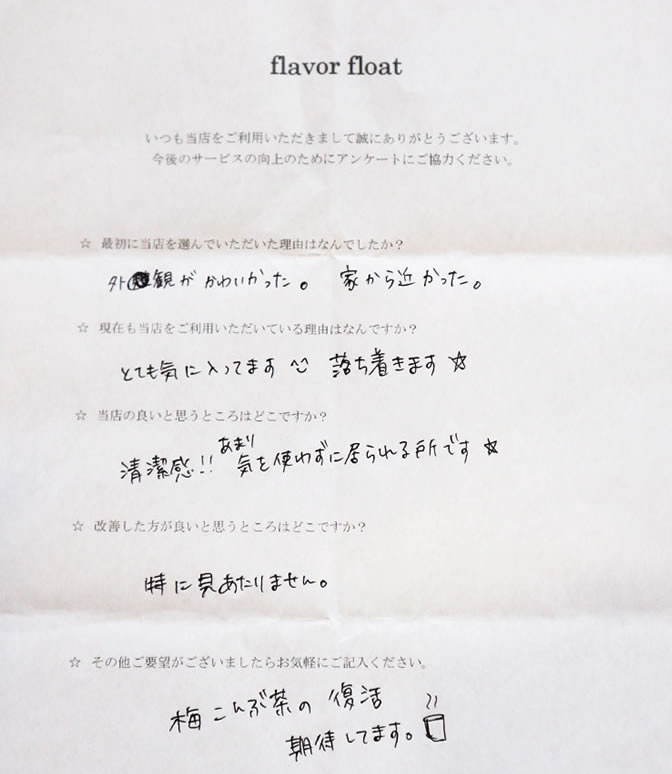 flavor float
いつも当店をご利用いただきまして誠にありがとうございます。
今後のサービスの向上のためにアンケートにご協力ください。
☆ 最初に当店を選んでいただいた理由はなんでしたか？
外観がかわいかった。 家から近かった。
☆ 現在も当店をご利用いただいている理由はなんですか？
とても気に入ってます 落ち着きます☆
☆ 当店の良いと思うところはどこですか？
清潔感!! あまり気を使わずに居られる所です☆
☆ 改善した方が良いと思うところはどこですか？
特に見あたりません。
☆ その他ご要望がございましたらお気軽にご記入ください。
梅こんぶ茶の復活
期待してます。